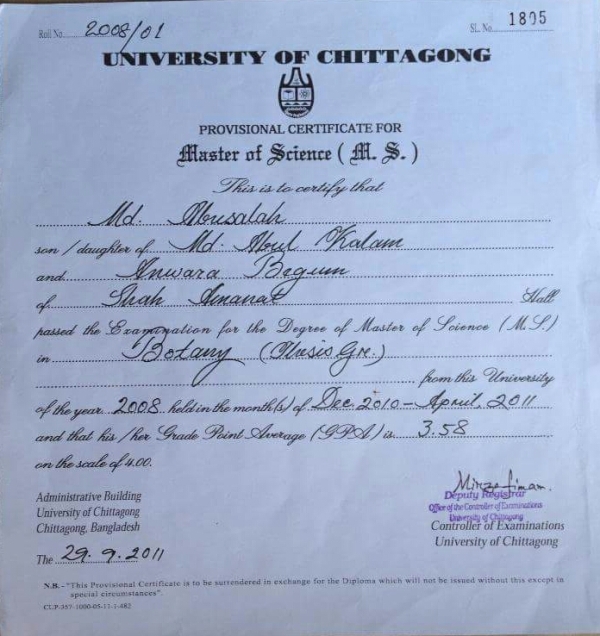 Roll No. 2008/01
SL. No. 1805
UNIVERSITY OF CHITTAGONG
PROVISIONAL CERTIFICATE FOR
Master of Science ( M. S. )
This is to certify that
Md. Abusalah
son / daughter of Md. Abul Kalam
and Anwara Begum
of Shah Amanat Hall
passed the Examination for the Degree of Master of Science ( M.S.)
in Botany
from this University
of the year 2008 held in the month(s) of Dec. 2010 - April, 2011
and that his / her Grade Point Average (GPA) is 3.58
on the scale of 4.00.
Administrative Building
University of Chittagong
Chittagong, Bangladesh
The 29. 9. 2011
Deputy Registrar
Office of the Controller of Examinations
University of Chittagong
Controller of Examinations
University of Chittagong
N.B. – "This Provisional Certificate is to be surrendered in exchange for the Diploma which will not be issued without this except in
special circumstances".